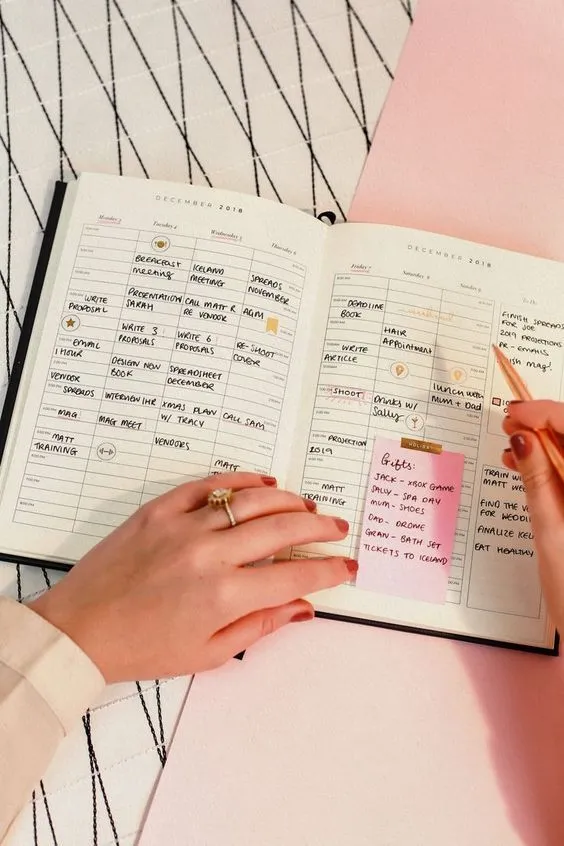 DECEMBER 2018
Monday 3
Tuesday 4
Wednesday 5
Thursday 6
WRITE
PROPOSAL
EMAIL
1 HOUR
VENDOR
SPREADS
MAG
MATT
TRAINING
BREAKFAST
meeting
PRESENTATION
SARAH
WRITE 3
PROPOSALS
DESIGN NEW
BOOK
INTERVIEW HR
MAG MEET
ICELAND
MEETING
CALL MATT R
RE VENDOR
WRITE 6
PROPOSALS
SPREADSHEET
DECEMBER
XMAS PLAN
W/ TRACY
VENDORS
SPREADS
NOVEMBER
AGM
RE-SHOOT
COVER
CALL SAM
MATT
DECEMBER 2018
Friday 7
Saturday 8
Sunday 9
DEADLINE
BOOK
WRITE
ARTICLE
SHOOT
PROJECTION
2019
MATT
TRAINING
HAIR
Appointment
Drinks w/
Sally
lunch with
Mum + Dad
HOLIDAY
Gifts:
JACK - XBOX GAME
SALLY - SPA DAY
MUM - SHOES
DAD - DRONE
GRAN - BATH SET
TICKETS TO ICELAND
FINISH SPREADS
FOR JOE
2019 PROJECTIONS
- EMAILS
mag!
TRAIN
MATT
FIND THE
FOR
FINALIZE
EAT HEALTHY